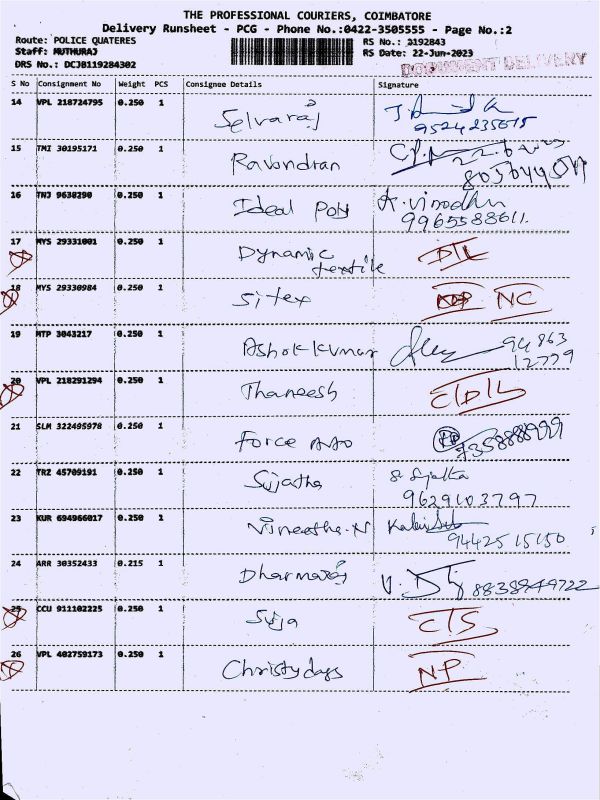 THE PROFESSIONAL COURIERS, COIMBATORE
Delivery Runsheet - PCG - Phone No.:0422-3505555 - Page No.:2
Route: POLICE QUATERES RS No.: 2192843
Staff: MUTHURAJ RS Date: 22-Jun-2023
DRS No.: DCJB119284302 DOCUMENT DELIVERY
S No Consignment No Weight PCS Consignee Details Signature
14 VPL 218724795 0.250 1 Selvaraj
9524235615
15 TMI 30195171 0.250 1 Ravondran
16 TNJ 9630290 0.250 1 Ideal Poly A. Vinodhn
9965588611.
17 MYS 29331001 0.250 1 Dynamic textile DTL
18 MYS 29330984 0.250 1 Sitex NC
19 MTP 3043217 0.250 1 Ashok kumar 94863
12779
20 VPL 218291294 0.250 1 Thaneesh C/D/L
21 SLM 322495978 0.250 1 Force Auto 7358888999
22 TRZ 45709191 0.250 1 Sujatha S Sujatha
9629103797
23 KUR 694966017 0.250 1 Vineetha.N
9442515150
24 ARR 30352433 0.215 1 Dharmaraj 8838949722
25 CCU 911102225 0.250 1 Suja CTS
26 VPL 402759173 0.250 1 Christydays NP